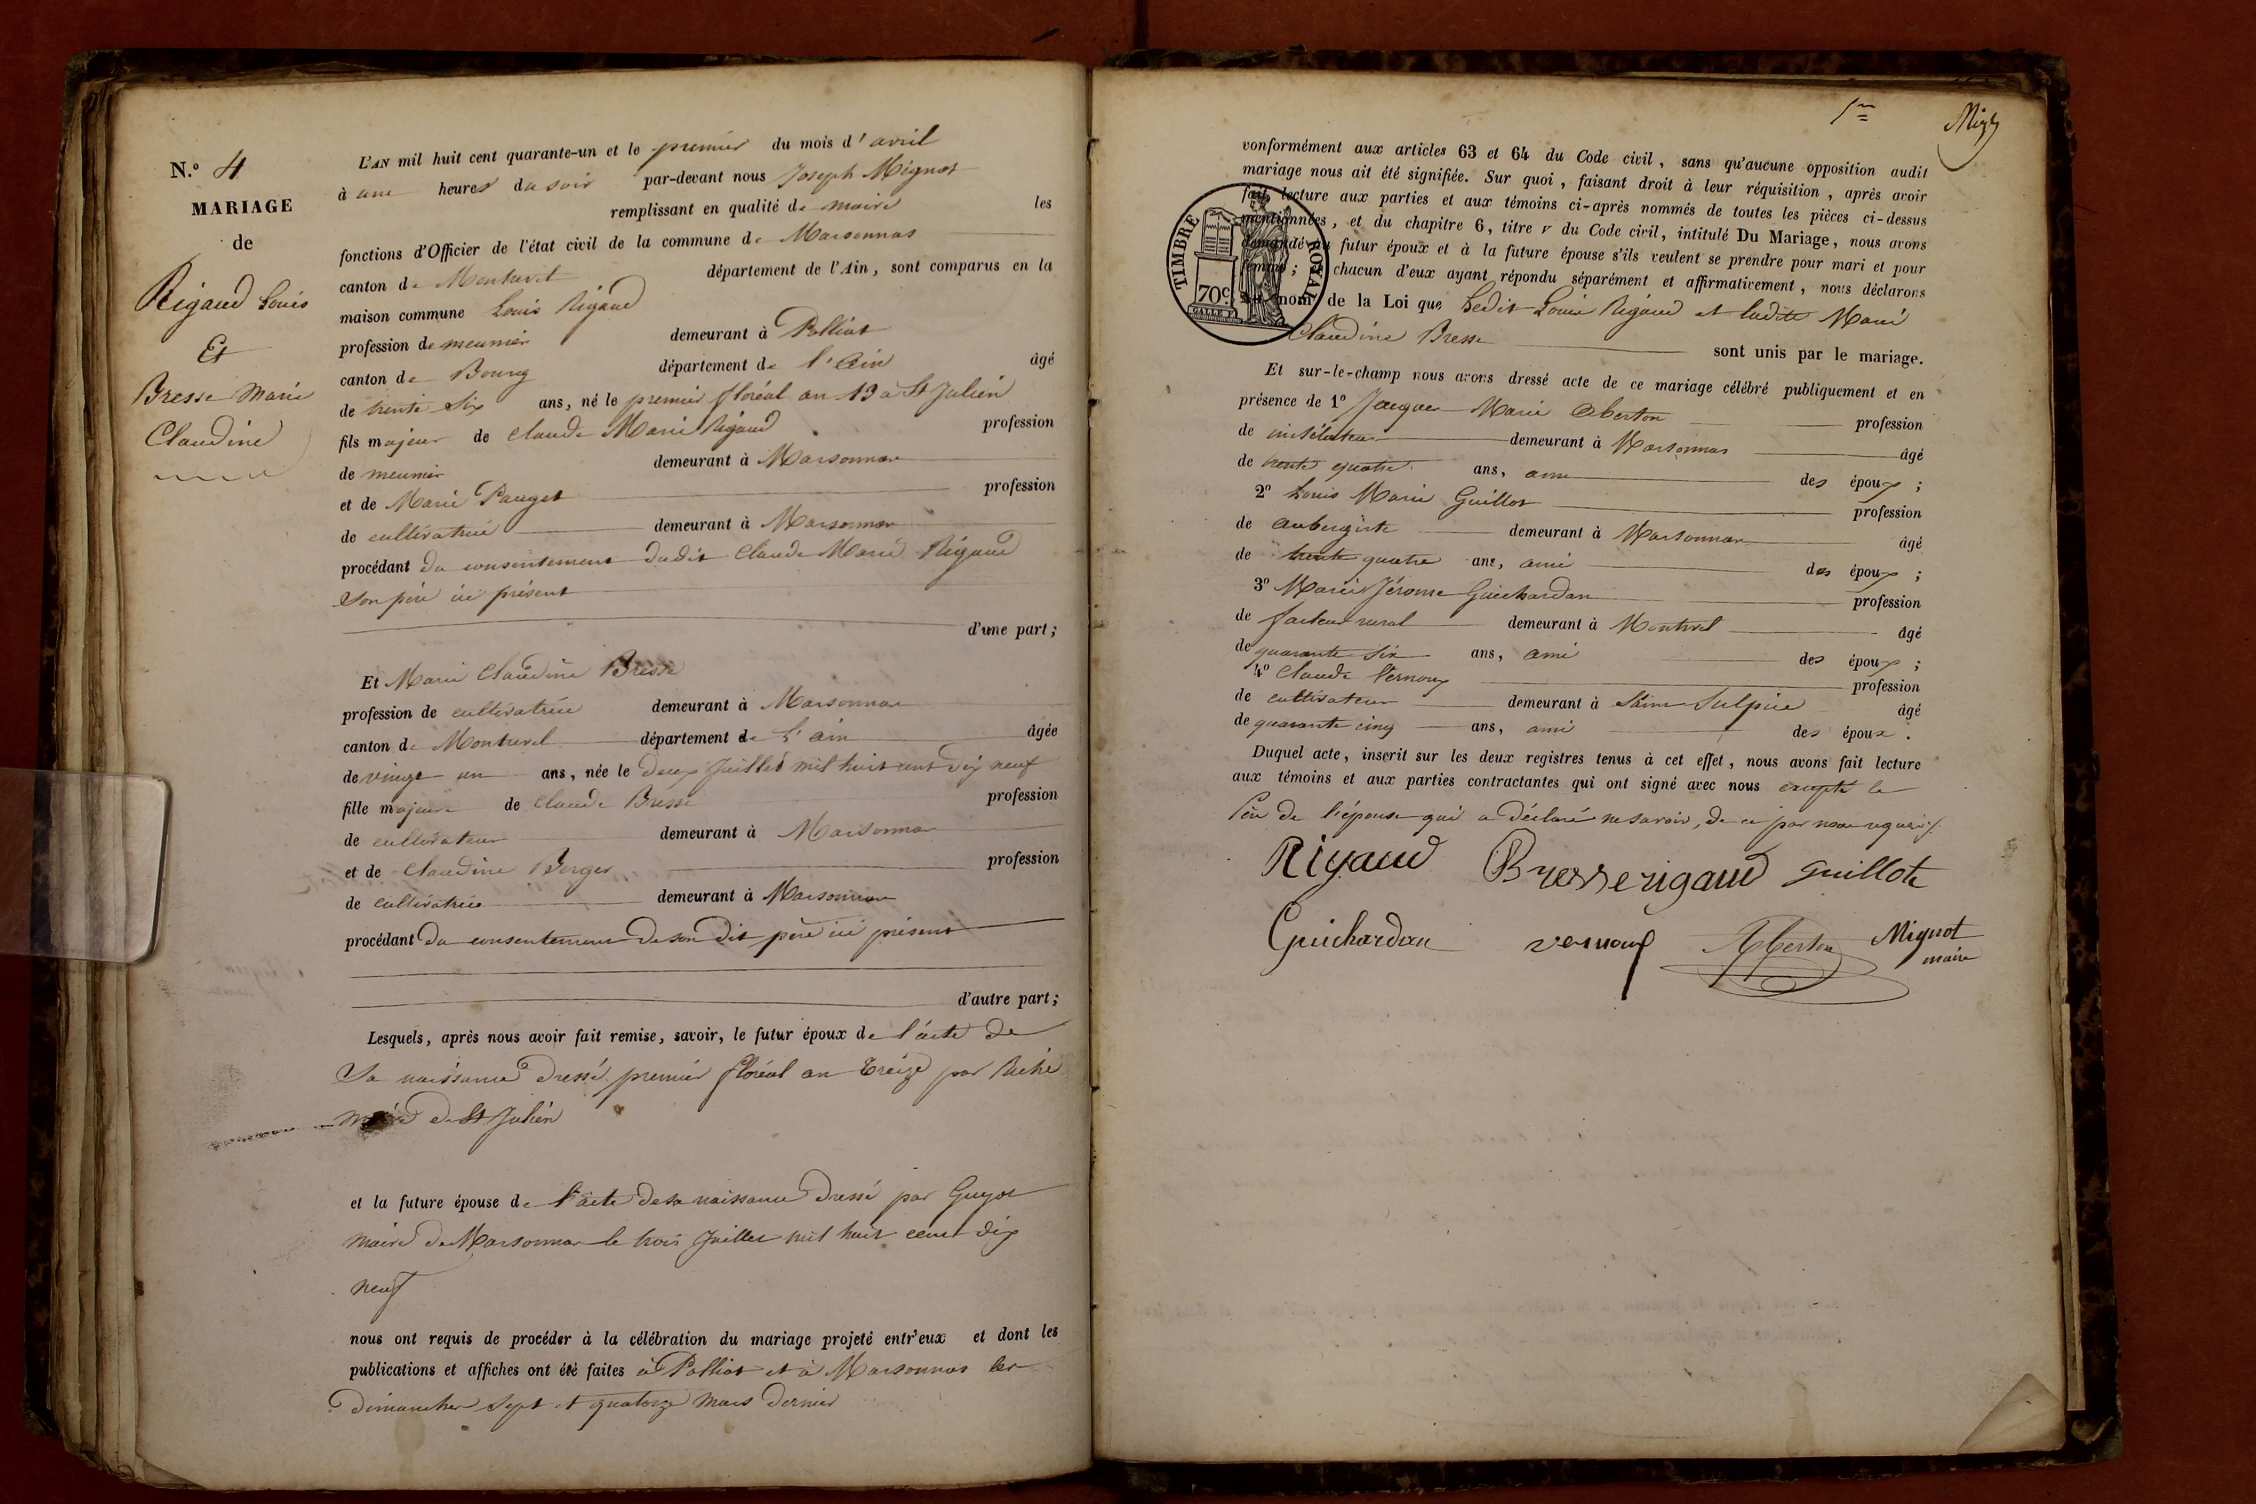 N.º 4
MARIAGE
de
Rigaud Louis
Et
Bresse Marie
Claudine
L'AN mil huit cent quarante-un et le premier du mois d'avril
à une heures du soir par-devant nous Joseph Mignot
remplissant en qualité de maire les
fonctions d'Officier de l'état civil de la commune de Marsonnas
canton de Montrevel département de l'Ain, sont comparus en la
maison commune Louis Rigaud
profession de meunier demeurant à Polliat
canton de Bourg département de l'Ain âgé
de trente six ans, né le premier floréal an 13 à St Julien
fils majeur de Claude Marie Rigaud profession
de meunier demeurant à Marsonnas
et de Marie Pauget profession
de cultivatrice demeurant à Marsonnas
procédant du consentement dudit Claude Marie Rigaud
son père ici présent
d'une part;
Et Marie Claudine Bresse
profession de cultivatrice demeurant à Marsonnas
canton de Montrevel département de l'ain âgée
de vingt un ans, née le deux Juillet mil huit cent dix neuf
fille majeure de Claude Bresse profession
de cultivateur demeurant à Marsonnas
et de Claudine Berger profession
de cultivatrice demeurant à Marsonnas
procédant du consentement de son dit père ici présent
d'autre part;
Lesquels, après nous avoir fait remise, savoir, le futur époux de l'acte de
sa naissance dressé premier floréal an treize par
maire de St Julien
et la future épouse de l'acte de sa naissance dressé par Guyot
maire de Marsonnas le trois Juillet mil huit cent dix
neuf
nous ont requis de procéder à la célébration du mariage projeté entr'eux et dont les
publications et affiches ont été faites à Polliat et à Marsonnas les
dimanches sept et quatorze mars dernier
conformément aux articles 63 et 64 du Code civil, sans qu'aucune opposition audit
mariage nous ait été signifiée. Sur quoi, faisant droit à leur réquisition, après avoir
fait lecture aux parties et aux témoins ci-après nommés de toutes les pièces ci-dessus
mentionnées, et du chapitre 6, titre v du Code civil, intitulé Du Mariage, nous avons
demandé au futur époux et à la future épouse s'ils veulent se prendre pour mari et pour
femme; chacun d'eux ayant répondu séparément et affirmativement, nous déclarons
au nom de la Loi que Ledit Louis Rigaud et ladite Marie
Claudine Bresse sont unis par le mariage.
TIMBRE ROYAL
70c
Et sur-le-champ nous avons dressé acte de ce mariage célébré publiquement et en
présence de 1º Jacques Marie Aberton profession
de instituteur demeurant à Marsonnas âgé
de trente quatre ans, ami des époux;
2º Louis Marie Guillot profession
de aubergiste demeurant à Marsonnas âgé
de trente quatre ans, ami des époux;
3º Marie Jérome Guichardan profession
de facteur rural demeurant à Montrevel âgé
de quarante six ans, ami des époux;
4º Claude Vernoux profession
de cultivateur demeurant à Saint Sulpice âgé
de quarante cinq ans, ami des époux.
Duquel acte, inscrit sur les deux registres tenus à cet effet, nous avons fait lecture
aux témoins et aux parties contractantes qui ont signé avec nous excepté le
père de l'épouse qui a déclaré ne savoir, de ce par nous requis ./.
Rigaud Bresse rigaud guillot
Guichardan vernoux Aberton Mignot
maire